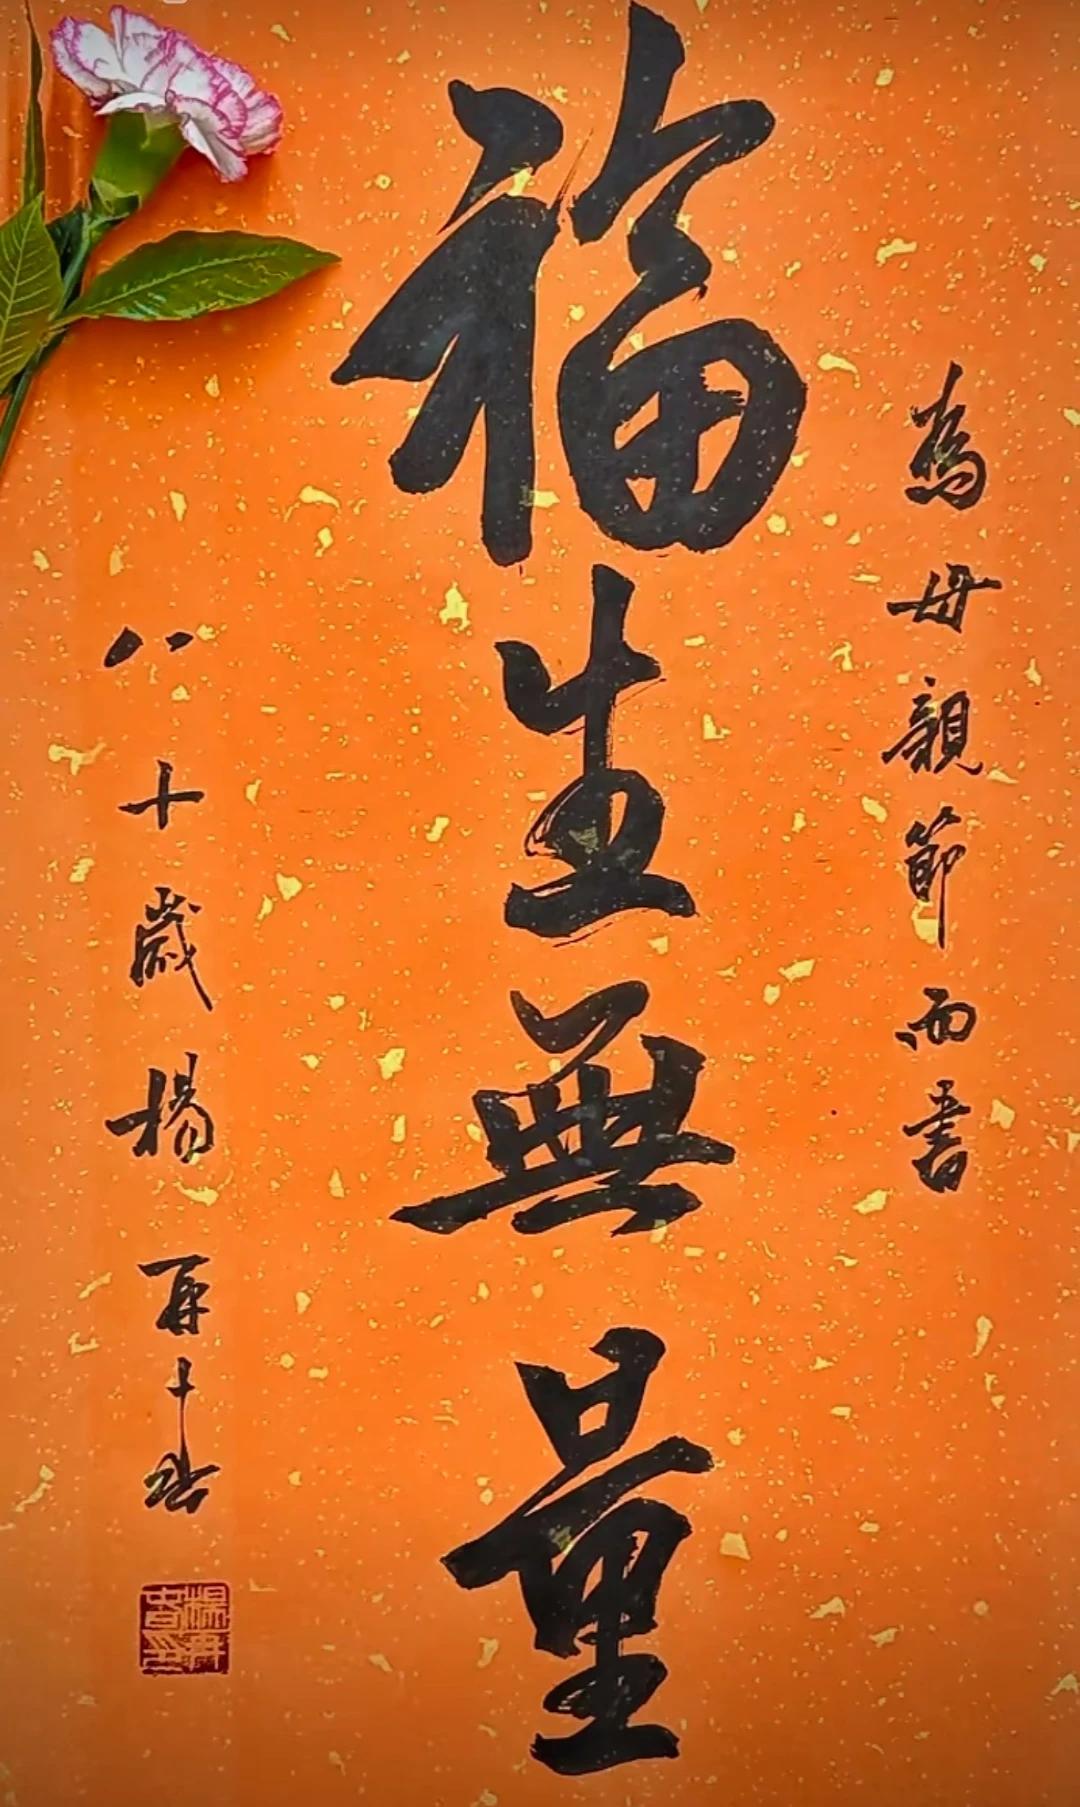 為母親節而書
福生無量
八十歲楊再春
楊再春印